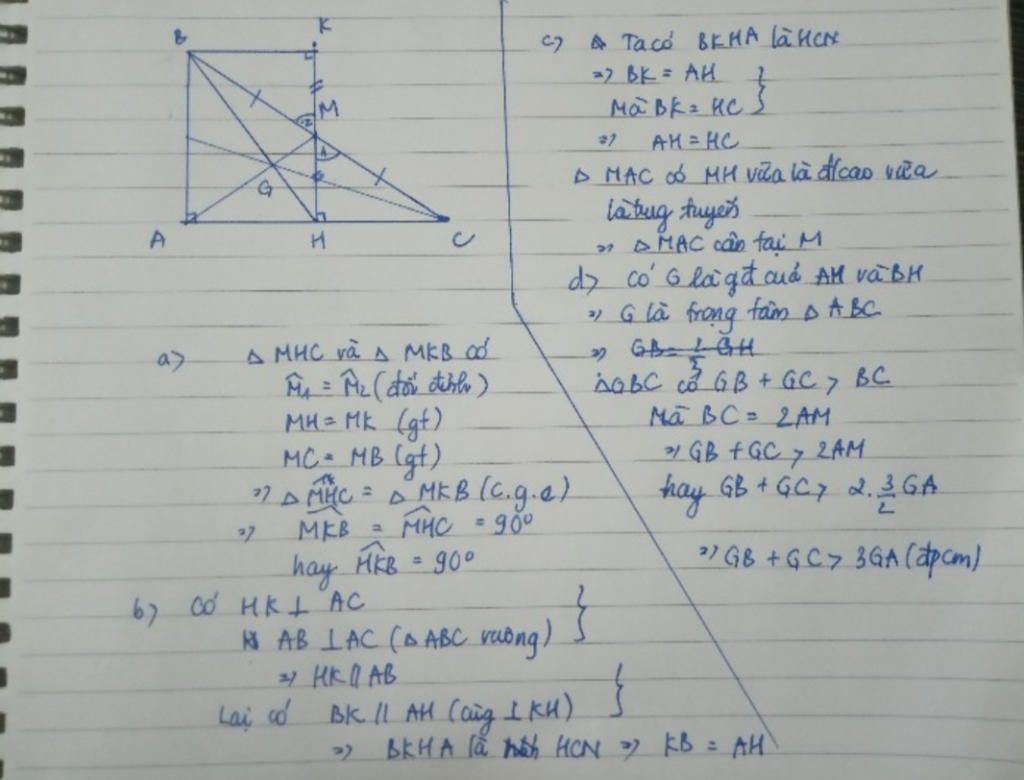 B
K
M
2
1
G
A
H
C
a> △ MHC và △ MKB có
M̂1 = M̂2 (đối đỉnh)
MH = MK (gt)
MC = MB (gt)
=> △ MHC = △ MKB (c.g.c)
=> MKB = MHC = 90°
hay HKB = 90°
b> Có HK ⊥ AC
AB ⊥ AC (△ ABC vuông)
=> HK // AB
Lại có BK // AH (cùng ⊥ KH)
=> BKHA là HCN => KB = AH
c> Ta có BKHA là HCN
=> BK = AH
Mà BK = HC
=> AH = HC
△ MAC có MH vừa là đ/cao vừa
là trug tuyến
=> △ MAC cân tại M
d> Có G là gđ cuả AH và BH
=> G là trọng tâm △ ABC
=> GB = GH
△GBC có GB + GC > BC
Mà BC = 2AM
=> GB + GC > 2AM
hay GB + GC > 2. 3/2 GA
=> GB + GC > 3GA (đpcm)